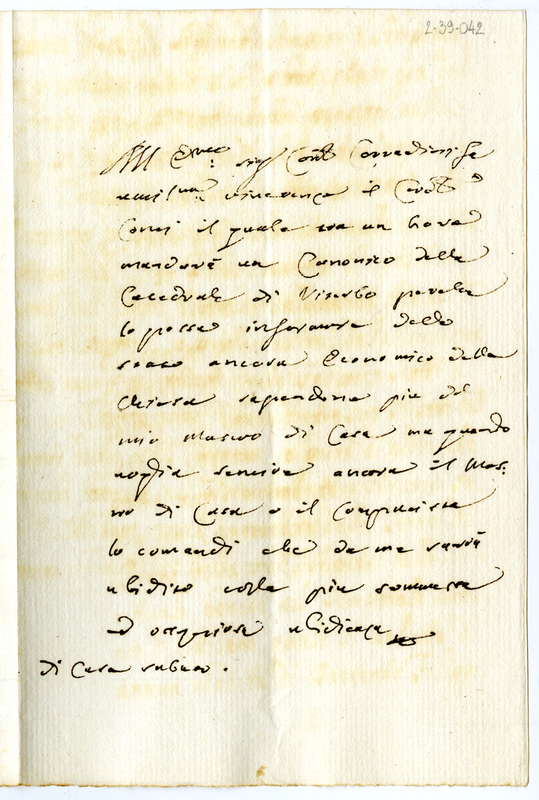 2-39-042
All Em.o sig.r Conte Corradini fa
umil.ma riverenza il Card.
Conti il quale tra un hora
manderà un Canonico della
Catedrale di Viterbo perche
lo possa informare dello
stato ancora Economico della
Chiesa sapendone piu del
mio Mastro di Casa ma quando
voglia sentire ancora il Mas-
tro di Casa o il Computista
lo comandi che da me sarà
ubidito colla piu sommessa
ed ossequiosa ubidienza
di Casa sabato.